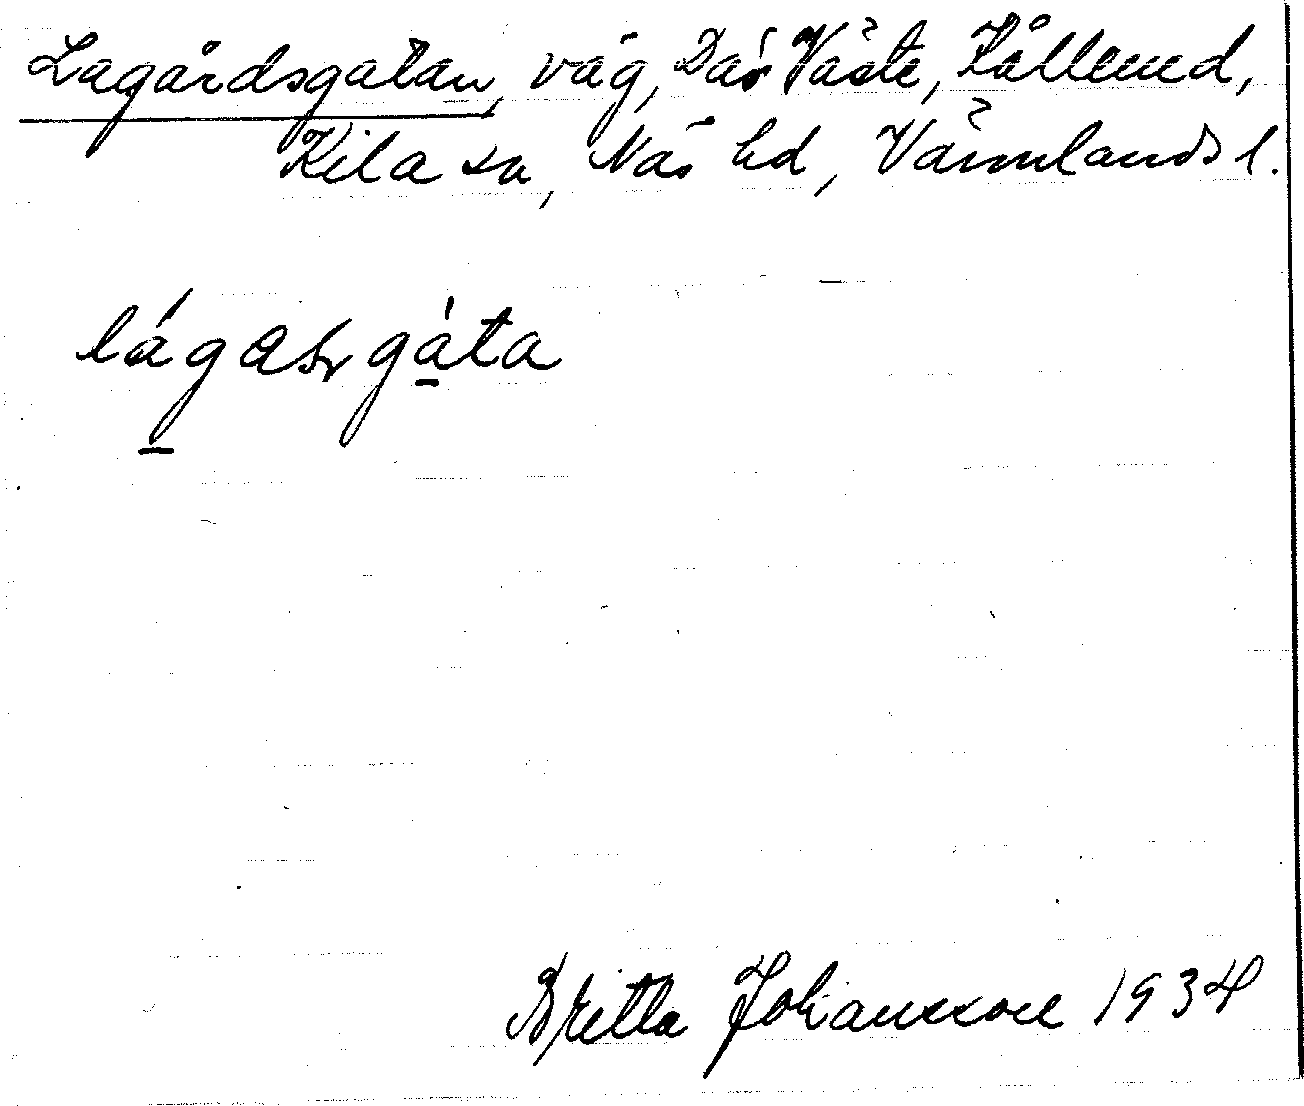 Lagårdsgatan, väg, Där Väste, Kållerud,
Kila sn, Näs hd, Värmlands l.
lágasrgáta
Britta Johansson 1934